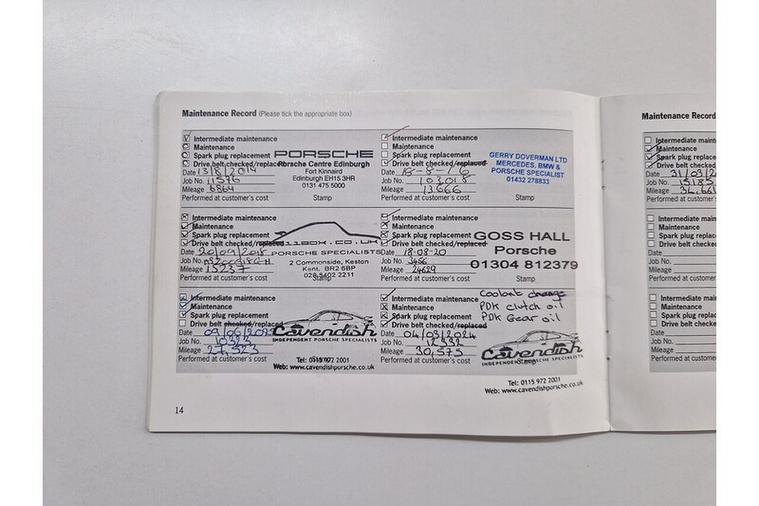 Maintenance Record (Please tick the appropriate box)
Intermediate maintenance
Maintenance
Spark plug replacement
Drive belt checked/replaced
Date 13/8/2014
Job No. 11576
Mileage 6864
Performed at customer's cost
PORSCHE
Porsche Centre Edinburgh
Fort Kinnaird
Edinburgh EH15 3HR
0131 475 5000
Stamp
Intermediate maintenance
Maintenance
Spark plug replacement
Drive belt checked/replaced
Date
Job No. 103018
Mileage 13666
Performed at customer's cost
GERRY DOVERMAN LTD
MERCEDES, BMW &
PORSCHE SPECIALIST
01432 278833
Stamp
Intermediate maintenance
Maintenance
Spark plug replacement
Drive belt checked/replaced
Date 20/09/2018
Job No.
Mileage 15237
Performed at customer's cost
911BOX.CO.UK
PORSCHE SPECIALISTS
2 Commonside, Keston
Kent. BR2 6BP
Stamp
Intermediate maintenance
Maintenance
Spark plug replacement
Drive belt checked/replaced
Date 18-08-20
Job No. 3456
Mileage 24629
Performed at customer's cost
GOSS HALL
Porsche
01304 812379
Stamp
Intermediate maintenance
Maintenance
Spark plug replacement
Drive belt checked/replaced
Date
Job No. 10323
Mileage 27,523
Performed at customer's cost
Cavendish
INDEPENDENT PORSCHE SPECIALISTS
Tel: 0115 972 2001
Web: www.cavendishporsche.co.uk
Intermediate maintenance
Maintenance
Spark plug replacement
Drive belt checked/replaced
Date 04/03/2024
Job No. 12332
Mileage 30,575
Performed at customer's cost
Coolant change
PDK clutch oil
PDK Gear oil
Cavendish
INDEPENDENT PORSCHE SPECIALISTS
Stamp
Tel: 0115 972 2001
Web: www.cavendishporsche.co.uk
14
Maintenance Record
Intermediate
Maintenance
Spark plug
Drive belt che
Date 31/03/2
Job No. 15185
Mileage
Performed at customer's
Intermediate
Maintenance
Spark plug
Drive belt che
Date
Job No.
Mileage
Performed at customer's
Intermediate
Maintenance
Spark plug
Drive belt che
Date
Job No.
Mileage
Performed at customer's